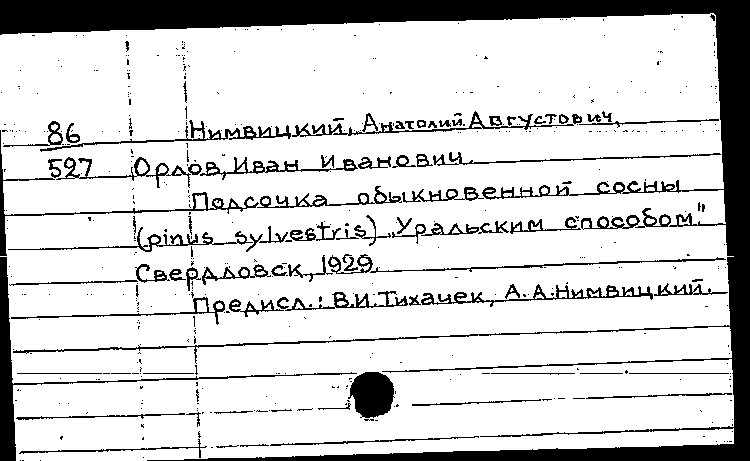 86 Нимвицкий, Анатолий Августович,
527 Орлов, Иван Иванович.
Подсочка обыкновенной сосны
(pinus sylvestris) „Уральским способом"
Свердловск, 1929.
Предисл.: В.И.Тихачек, А.А.Нимвицкий.